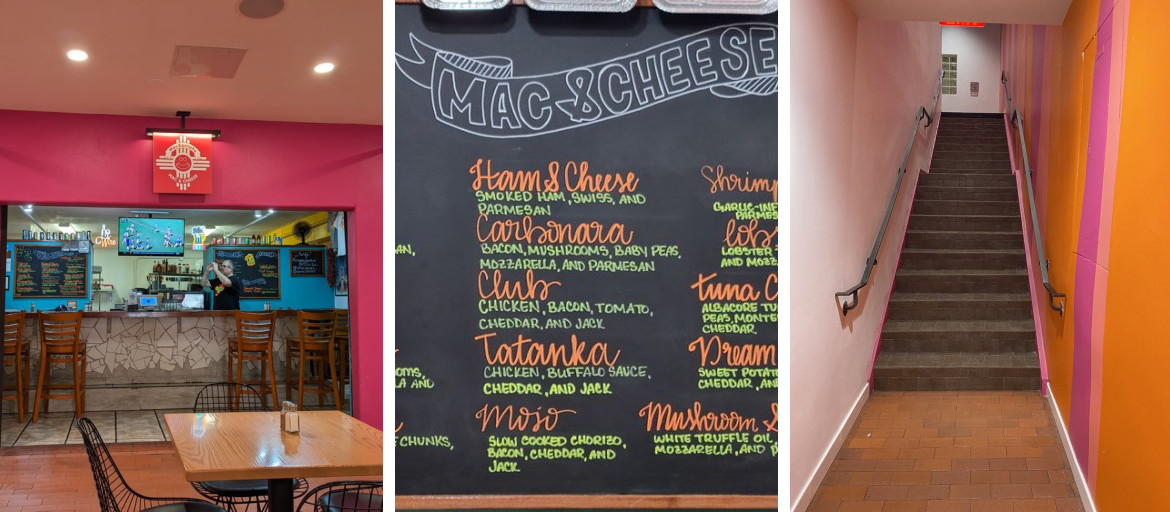 MAC & CHEESE
Ham & Cheese
SMOKED HAM, SWISS, AND
PARMESAN
Carbonara
BACON, MUSHROOMS, BABY PEAS,
MOZZARELLA, AND PARMESAN
Club
CHICKEN, BACON, TOMATO,
CHEDDAR, AND JACK
Tatanka
CHICKEN, BUFFALO SAUCE,
CHEDDAR, AND JACK
Mojo
SLOW COOKED CHORIZO,
BACON, CHEDDAR, AND
JACK
Shrimp
GARLIC-INF
PARMES
lobs
LOBSTER
AND MOZZ
tuna C
ALBACORE TU
PEAS, MONTE
CHEDDAR.
Dream
SWEET POTATO
CHEDDAR, AN
Mushroom S
WHITE TRUFFLE OIL,
MOZZARELLA, AND P
AN,
OMS,
LA AND
CHUNKS,